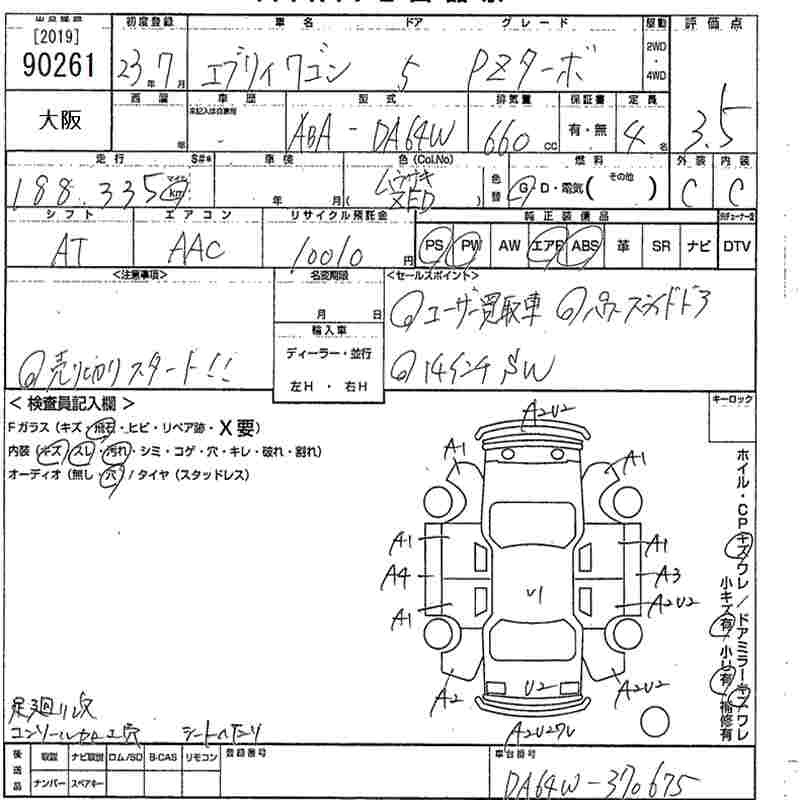 [2019]
90261
大阪
初度登録 車名 ドア グレード 駆動 評価点
23年7月 エブリイワゴン 5 PZターボ 2WD・4WD 3.5
西暦 車歴 型式 排気量 保証書 定員
年 未記入は自家用 ABA - DA64W 660cc 有・無 4名
走行 S#* 車検 色(Col.No) 燃料 外装 内装
188,335 マイル km 年 月 ムラサキ ZFD 色替 G・D・電気( その他 ) C C
シフト エアコン リサイクル預託金 純正装備品
AT AAC 10010円 PS PW AW エアB ABS 革 SR ナビ DTV
<注意事項> 名変期限 <セールスポイント>
月 日 ユーザー買取車 パワースライドドア
輸入車
ディーラー・並行
左H・右H
売り切りスタート!! 14インチSW
<検査員記入欄> キーロック
Fガラス(キズ・飛石・ヒビ・リペア跡・X要)
内装(キズ・スレ・汚れ・シミ・コゲ・穴・キレ・破れ・割れ)
オーディオ(無し・穴)/タイヤ(スタッドレス)
ホイル・CPキズワレ/ドアミラーキズワレ
小キズ有・小U有・補修有
A2U2
A1 A1
A1 A1
A4 A3
U1
A1 A2U2
A2 U2 A2U2
A2U2ワレ
足廻りサビ
コンソール加工穴 シートヘタリ
後送品 取説 ナビ取説 ロム/SD B-CAS リモコン 登録番号 車台番号
ナンバー スペアキー DA64W-370675